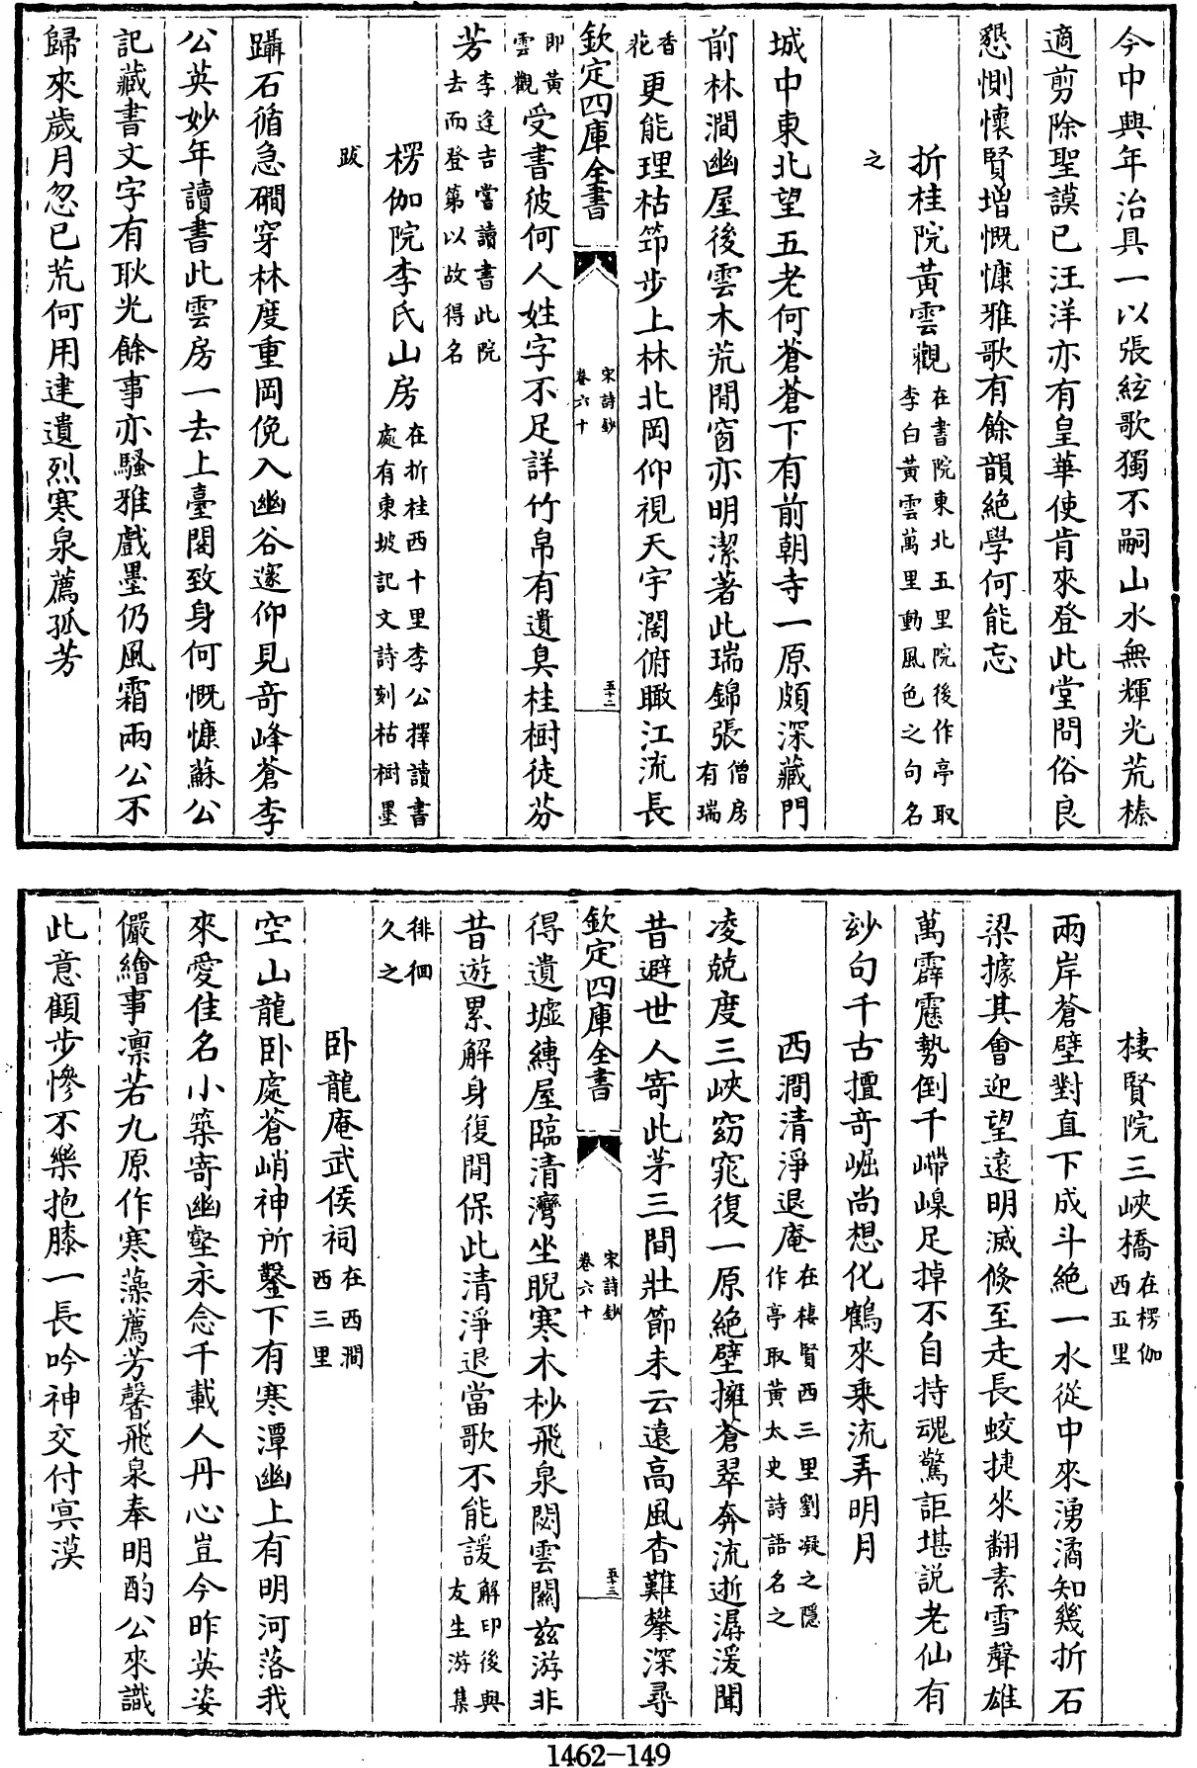 今中興年治具一以張絃歌獨不嗣山水無輝光荒榛
適剪除聖謨已汪洋亦有皇華使肯來登此堂問俗良
懇惻懷賢増慨慷雅歌有餘韻絶學何能忘
折桂院黃雲觀在書院東北五里院後作亭取李白黃雲萬里動風色之句名
之
城中東北望五老何蒼蒼下有前朝寺一原頗深藏門
前林澗幽屋後雲木荒閒窗亦明潔著此瑞錦張僧房有瑞
香花更能理枯笻步上林北岡仰視天宇濶俯瞰江流長
欽定四庫全書
宋詩鈔
卷六十
五十二
即黃雲觀受書彼何人姓字不足詳竹帛有遺臭桂樹徒芬
芳李逢吉嘗讀書此院去而登第以故得名
楞伽院李氏山房在折桂西十里李公擇讀書處有東坡記文詩刻枯樹墨
跋
躡石循急磵穿林度重岡俛入幽谷邃仰見奇峰蒼李
公英妙年讀書此雲房一去上臺閣致身何慨慷蘇公
記藏書文字有耿光餘事亦騷雅戲墨仍風霜兩公不
歸來歲月忽已荒何用建遺烈寒泉薦孤芳
棲賢院三峽橋在楞伽西五里
兩岸蒼壁對直下成斗絶一水從中來湧潏知幾折石
梁據其會迎望遠明滅倏至走長蛟捷來翻素雪聲雄
萬霹靂勢倒千嵽嵲足掉不自持魂驚詎堪説老仙有
妙句千古擅奇崛尚想化鶴來乘流弄明月
西澗清淨退庵在棲賢西三里劉凝之隱作亭取黃太史詩語名之
凌兢度三峽窈窕復一原絶壁擁蒼翠奔流逝潺湲聞
昔避世人寄此茅三間壯節未云遠高風杳難攀深尋
欽定四庫全書
宋詩鈔
卷六十
五十三
得遺墟縛屋臨清灣坐睨寒木杪飛泉閟雲關茲游非
昔遊累解身復閒保此清淨退當歌不能諼解印後與友生游集
徘徊久之
卧龍庵武侯祠在西澗西三里
空山龍卧處蒼峭神所鑿下有寒潭幽上有明河落我
來愛佳名小築寄幽壑永念千載人丹心豈今昨英姿
儼繪事凛若九原作寒藻薦芳馨飛泉奉明酌公來識
此意顧步慘不樂抱膝一長吟神交付冥漠
1462-149